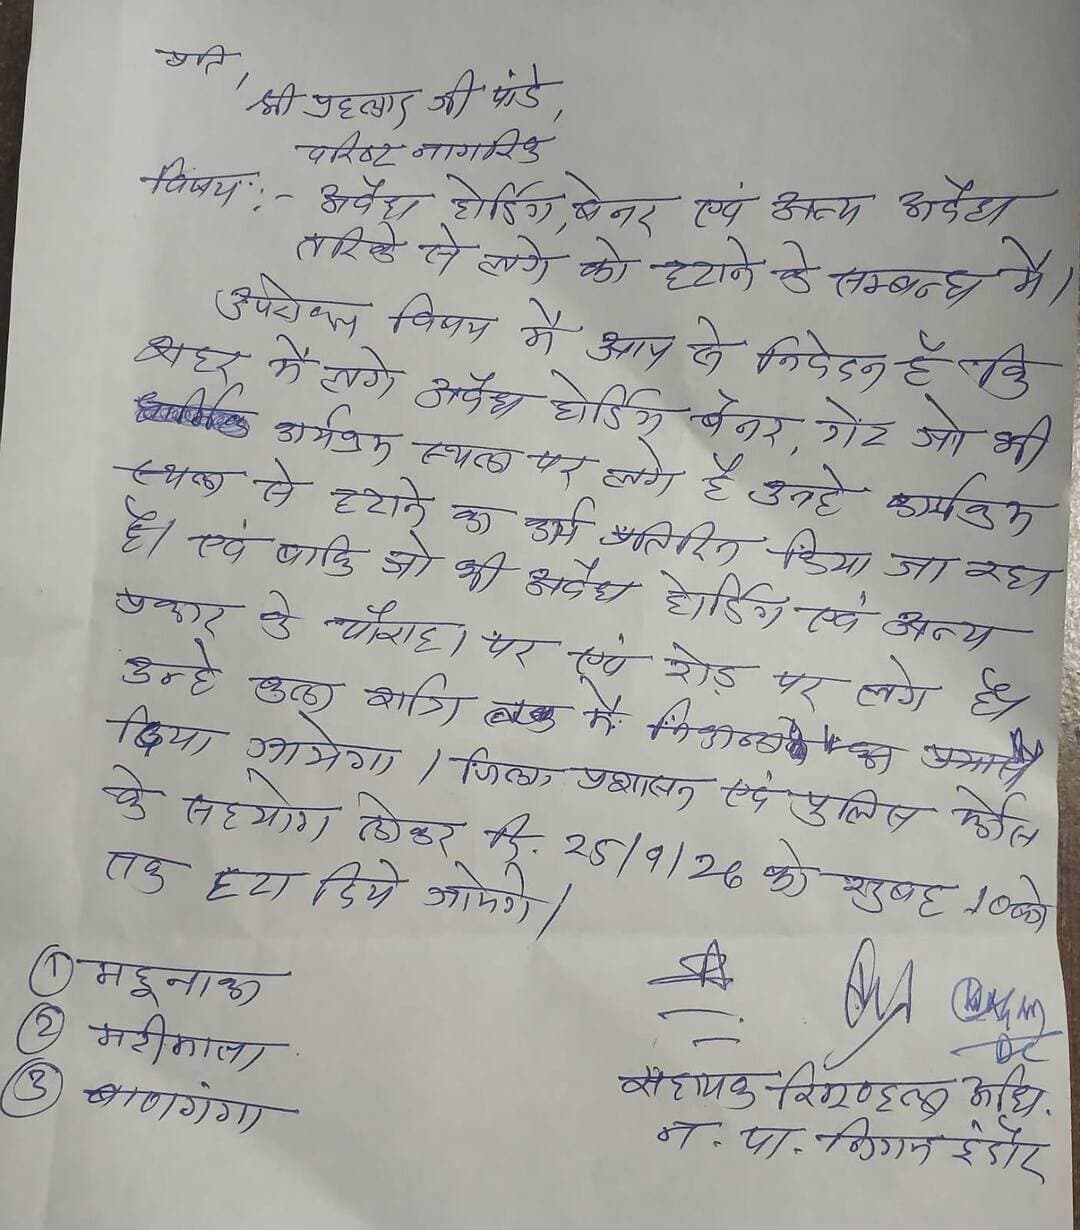 प्रति,
श्री प्रहलाद जी पांडे,
वरिष्ट नागरिक
विषय :- अवैध होर्डिंग, बेनर एवं अन्य अवैध
तरिके से लगे को हटाने के सम्बन्ध मे।
उपरोक्त विषय मैं आप से निवेदन है कि
शहर मैं लगे अवैध होर्डिंग बेनर, गेट जो भी
कार्यक्रम स्थल पर लगे है उन्हे कार्यक्रम
स्थल से हटाने का कार्य प्रतिदिन किया जा रहा
है। एवं बाकि जो भी अवैध होर्डिंग एवं अन्य
प्रकार के चौराहा पर एवं रोड़ पर लगे है।
उन्हे कल रात्रि तक में निकालने का प्रयास
किया जायेगा। जिला प्रशासन एवं पुलिस फोर्स
के सहयोग लेकर दि. 25/9/26 को सुबह 10 बजे
तक हटा दिये जायेंगे।
① महूनाका
② मरीमाता
③ बाणगंगा
DC
सहायक रिमूव्हल अधि.
न. पा. निगम इंदौर